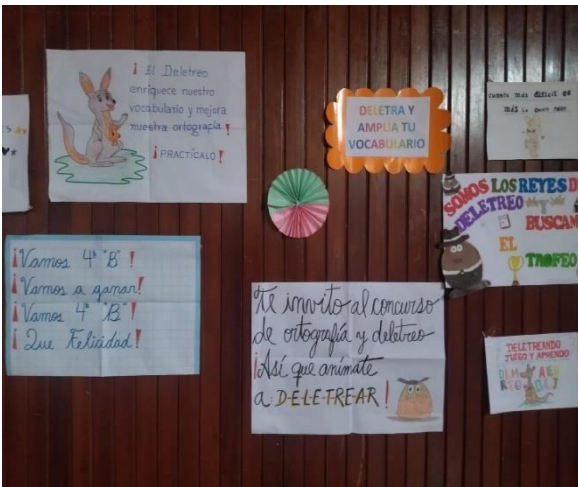 ¡ El Deletreo
enriquece nuestro
vocabulario y mejora
nuestra ortografía.!
¡ PRACTÍCALO !
DELETRA Y
AMPLIA TU
VOCABULARIO
cuanto más difícil es
más
SOMOS LOS REYES D
DELETREO
BUSCAM
EL
TROFEO
¡Vamos 4° "B" !
¡Vamos a ganar!
¡Vamos 4° "B" !
¡ Que Felicidad !
Te invito al concurso
de ortografía y deletreo
¡Así que anímate
a D-E-L-E-T-R-E-A-R !
DELETREANDO
JUEGO Y APRENDO